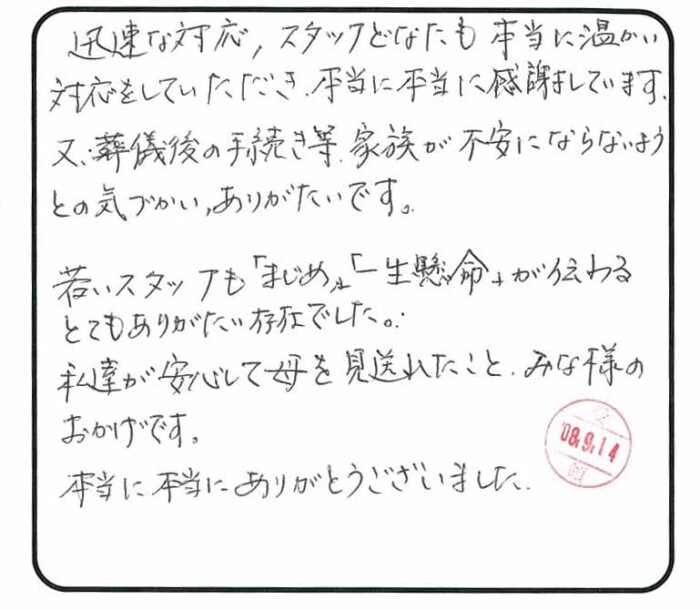 迅速な対応、スタッフどなたも本当に温かい
対応をしていただき、本当に本当に感謝しています。
又、葬儀後の手続き等、家族が不安にならないよう
との気づかい、ありがたいです。
若いスタッフも「まじめ」「一生懸命」が伝わる
とてもありがたい存在でした。
私達が安心して母を見送れたこと、みな様の
おかげです。
'08.9.14
本当に本当にありがとうございました。